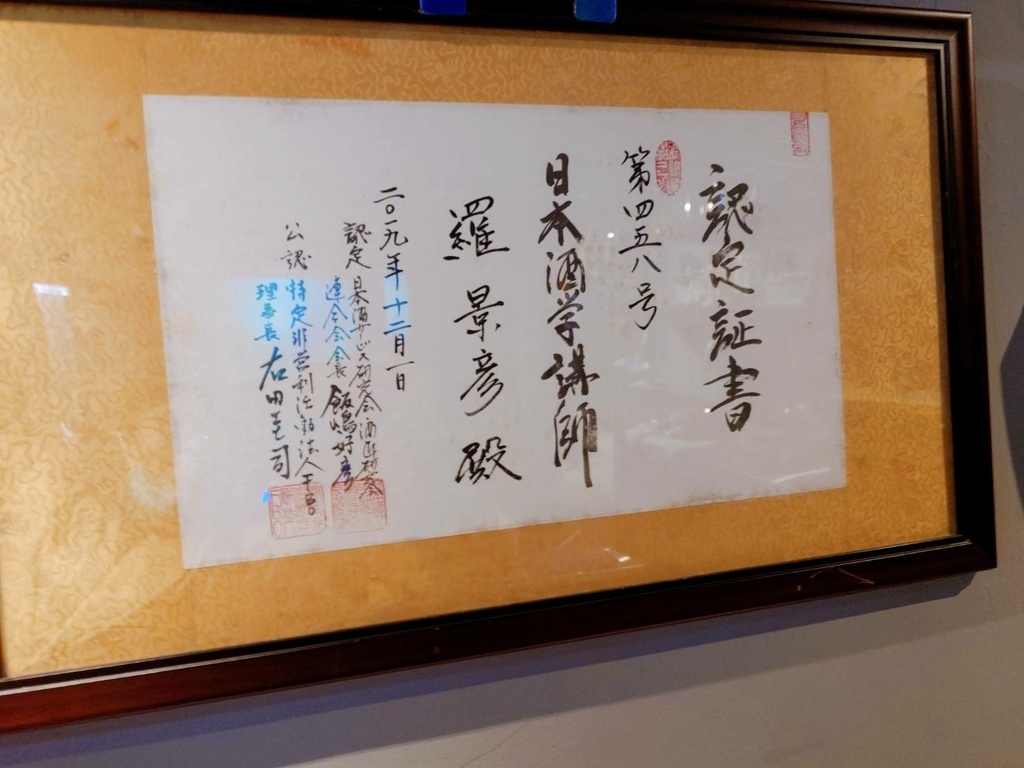 認定証書
第四五八号
日本酒学講師
羅景彦殿
二〇一九年十二月一日
認定 日本酒サービス研究会酒匠
連合会会長 飯嶋好彦
公認 特定非営利活動法人
理事長 右田圭司